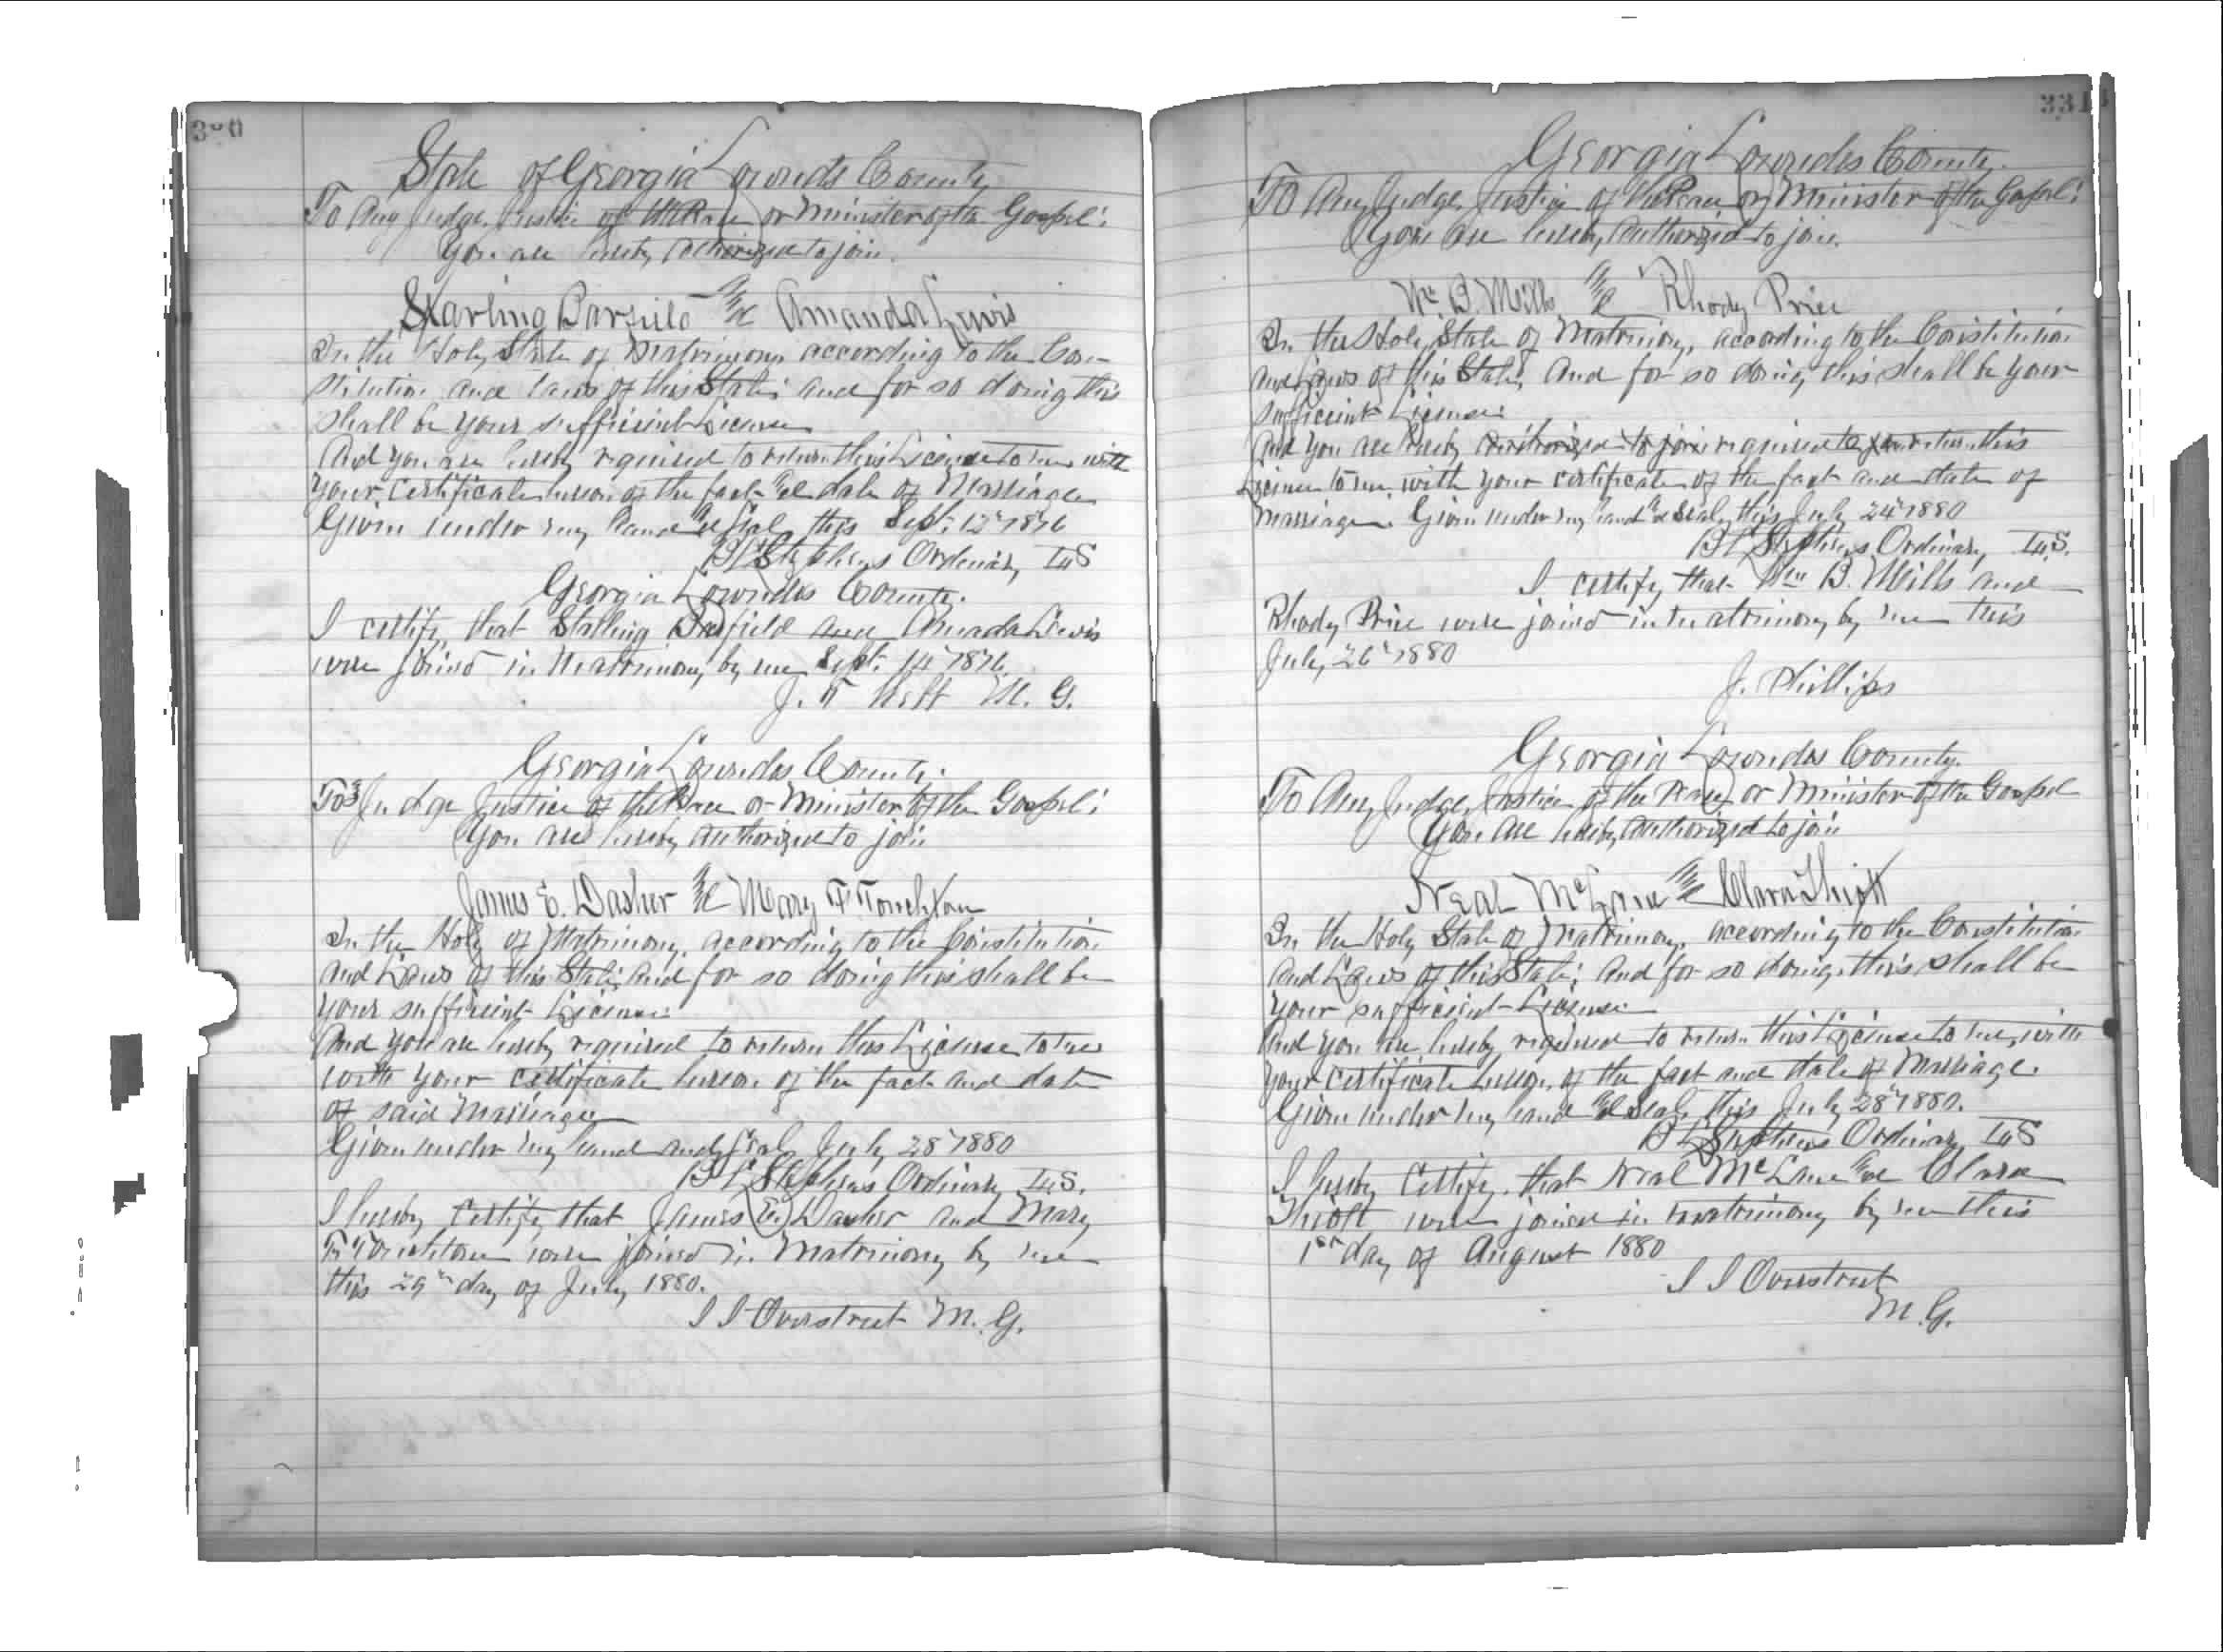 330
State of Georgia Lowndes County
To Any Judge, Justice of the Peace or Minister of the Gospel:
You are hereby authorized to join
Starling Barfield & Amanda Lewis
In the Holy State of Matrimony according to the Con-
stitution and laws of this State; and for so doing this
shall be your sufficient License
And you are hereby required to return this License to me with
your certificate hereon of the fact & date of Marriage
Given under my hand & seal, this Sept. 12" 1876
Stephens Ordinary, L.S
Georgia Lowndes County.
I certify, that Stalling Barfield and Amada Lewis
were joined in Matrimony by me, Sept. 14" 1876.
J. M. G.
Georgia Lowndes County.
To Judge Justice of the Peace or Minister of the Gospel:
You are hereby authorized to join
James E. Dasher & Mary F Touchton
In the Holy of Matrimony, according to the Constitution
and Laws of this State; and for so doing this shall be
your sufficient License
And you are hereby required to return this License to me
with your certificate hereon of the fact and date
of said Marriage
Given under my hand and seal July 28" 1880
Stephens Ordinary L.S.
I hereby certify that James E. Dasher and Mary
F Touchton were joined in Matrimony by me
this 29th day of July 1880.
J J Overstreet M. G.
331
Georgia Lowndes County.
To Any Judge, Justice of the Peace or Minister of the Gospel:
You are hereby authorized to join
Wm B. Mills & Rhody Price
In the Holy State of Matrimony, according to the Constitution
and Laws of this State, and for so doing, this shall be your
sufficient License
And you are hereby authorized to join required to return this
License to me, with your certificate of the fact and date of
Marriage. Given under my hand & seal, this July 24" 1880
Stephens Ordinary, L.S.
I certify that Wm B. Mills and
Rhody Price were joined in matrimony by me this
July, 26" 1880
J. Phillips
Georgia Lowndes County.
To Any Judge, Justice of the Peace or Minister of the Gospel
You are hereby authorized to join
Neal McLane & Clara
In the Holy State of Matrimony, according to the Constitution
and Laws of this State; and for so doing, this shall be
your sufficient License
And you are hereby required to return this License to me, with
your certificate hereon, of the fact and date of Marriage.
Given under my hand & Seal, this July 28" 1880.
Stephens Ordinary L.S
I hereby certify, that Neal McLane & Clara
were joined in matrimony by me this
1st day of August 1880
J J Overstreet
M. G.